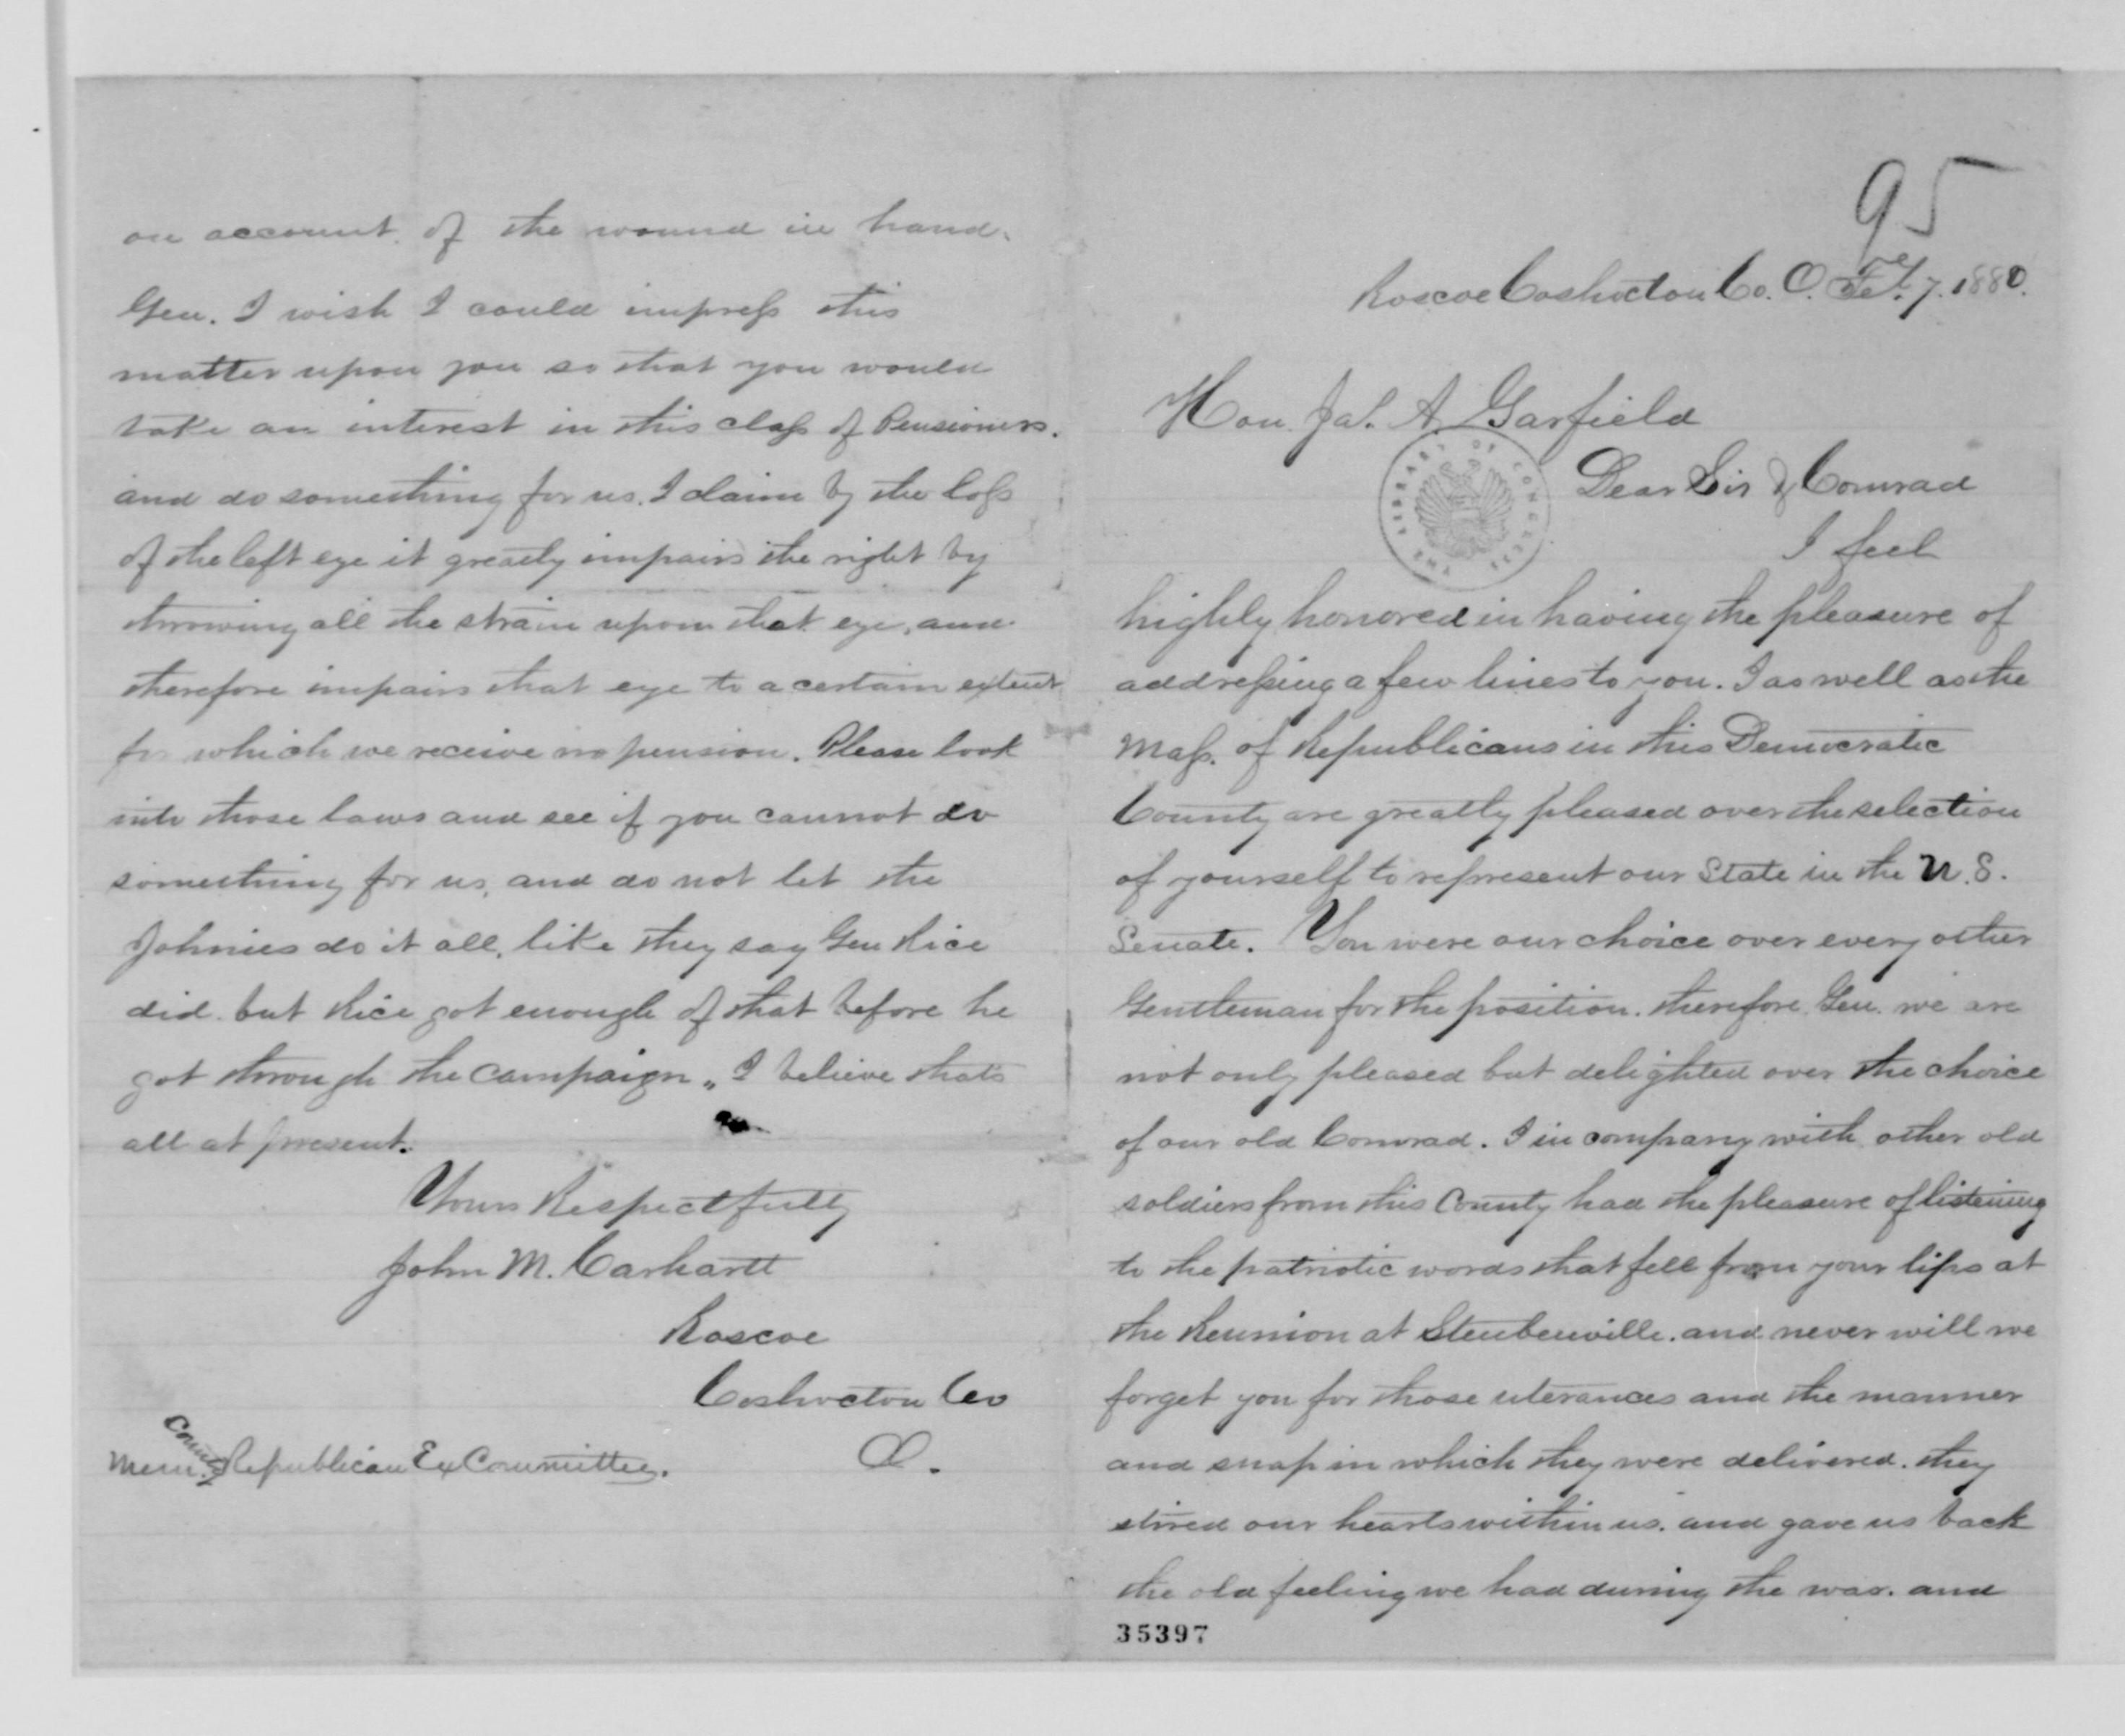 95
Roscoe Coshocton Co. O. Feb. 7. 1880.
Hon. Jas. A. Garfield
Dear Sir & Comrad
I feel
highly honored in having the pleasure of
addressing a few lines to you. I as well as the
Mass. of Republicans in this Democratic
County are greatly pleased over the selection
of yourself to represent our State in the U.S.
Senate. You were our choice over every other
Gentleman for the position. therefore Gen. we are
not only pleased but delighted over the choice
of our old Comrad. I in company with other old
soldiers from this County had the pleasure of listening
to the patriotic words that fell from your lips at
the Reunion at Steubenville. and never will we
forget you for those uterances and the manner
and snap in which they were delivered. they
stired our hearts within us. and gave us back
the old feeling we had during the war. and
35397
THE LIBRARY OF CONGRESS
on account of the wound in hand.
Gen. I wish I could impress this
matter upon you so that you would
take an interest in this class of Pensioners.
and do something for us. I claim by the loss
of the left eye it greatly impairs the right by
throwing all the strain upon that eye, and
therefore impairs that eye to a certain extent
for which we receive no pension. Please look
into those laws and see if you cannot do
something for us, and do not let the
Johnies do it all, like they say Gen Rice
did. but Rice got enough of that before he
got through the campaign. I believe thats
all at present.
Yours Respectfully
John M. Carhartt
Roscoe
Coshocton Co
O.
Mem. County Republican Ex Committee.